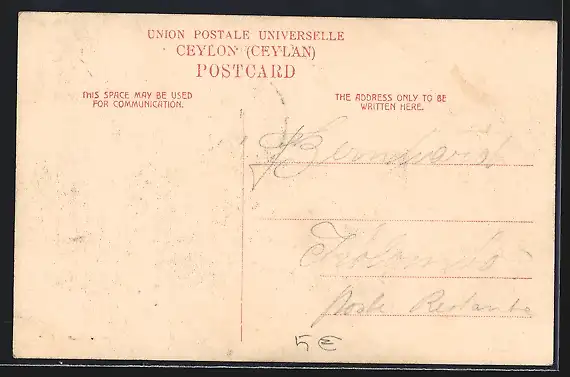 UNION POSTALE UNIVERSELLE
CEYLON (CEYLAN)
POSTCARD
THIS SPACE MAY BE USED
FOR COMMUNICATION.
THE ADDRESS ONLY TO BE
WRITTEN HERE.
Poste Restante
5€